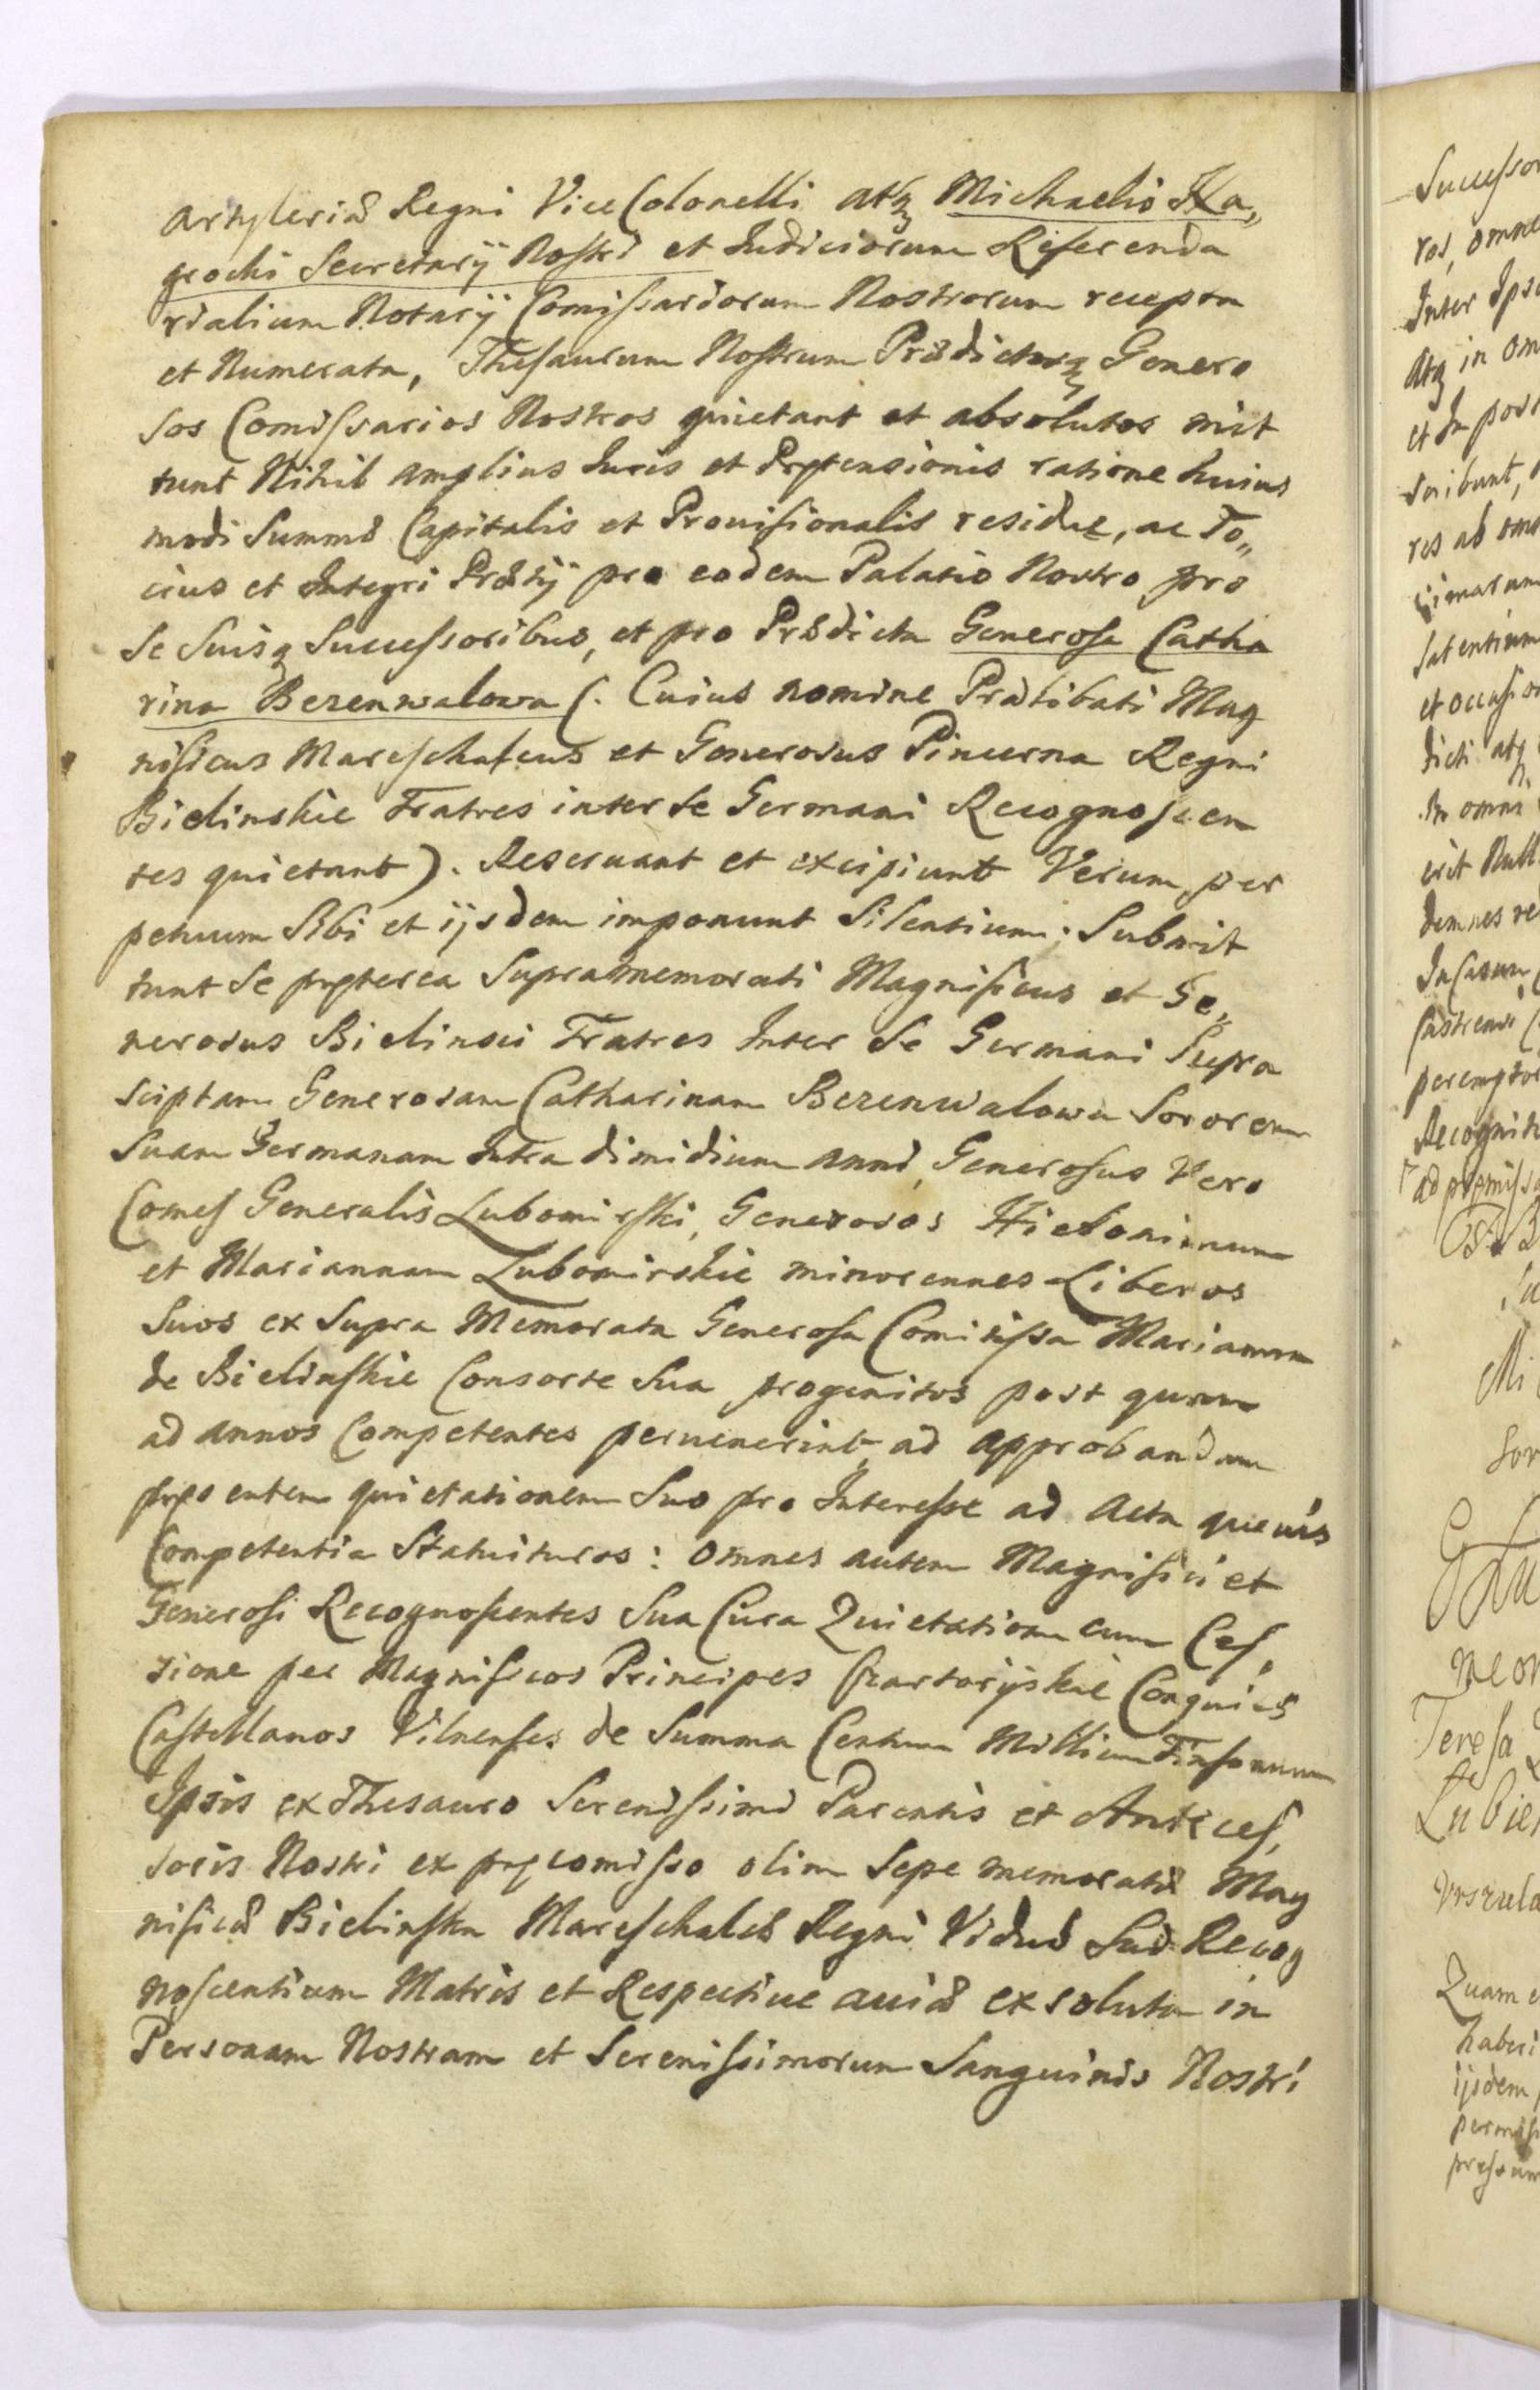 Artyleriæ Regni ViceColonelli atq Michaelis Ha„
grocki Secretarÿ Nostri et Iudiciorum Referenda
rialium Notarÿ Comissariorum Nostrorum recepta
et Numerata, Thesaurum Nostrum Prædictosq Genero
sos Comissarios Nostros quietant et absolutos mit
tunt Nihil amplius Iuris et Prętensionis ratione huius
modi Summæ Capitalis et Prouisionalis residuę, ac To„
cius et Integri Prætÿ pro eodem Palatio Nostro pro
Se Suisq Successoribus, et pro Prædicta Generosa Catha
rina Bezenwalowa (. Cuius nomine Prælibati Mag
nificus Mareschalcus et Generosus Pincerna Regni
Bielinskie Fratres inter se Germani Recognoscen
tes quietant). Reseruant et excipiunt Verum, per
petuum Sibi et ijsdem imponunt Silentium; Submit
tunt Se pręterea Supramemorati Magnificus et Ge„
nerosus Bielinsci Fratres Inter Se Germani Supra
sciptam Generosam Catharinam Bezenwalowa Sororem
Suam Germanam Intra dimidium anni, Generosus Vero
Comes Generalis Lubomirski, Generosos Hieronimum
et Mariannam Lubomirskie minorennes Liberos
Suos ex Supra Memorata Generosa Comitissa Marianna
de Bielinskie Consorte Sua progenitos post quam
ad annos Competentes peruenerint ad approbandam
pręsentem quietationem Suo pro Interesse ad Acta quęuis
Competentia Statuituros: Omnes autem Magnifici et
Generosi Recognoscentes Sua Cura Quietationem cum Ces„
sione per Magnificos Principes Czartorÿskie Coniuges
Castellanos Vilnenses de Summa Centum Millium Tinforum
Ipsis ex Thesauro Serenissimi Parentis et Anteces„
soris Nostri ex pręcomisso olim Sepe memoratæ Mag
nificæ Bielinska Mareschalcæ Regni Viduæ Suæ Recog
noscentium Matris et Respectiue auiæ exsoluta in
Personam Nostram et Serenissimorum Sanguinis Nostri
Successo
ros, omne
Inter Ips
Atq in om
et In pos
scribunt,
res ab om
et occasio
dicti atq
In omni
erit Null
demnes re
In Casum
Castrensi
perempto
Recognit
ad pręmissa
Mi
Sor
Teresa
Lubie
Vrszula
Quam e
haberi
ijsdem
permis